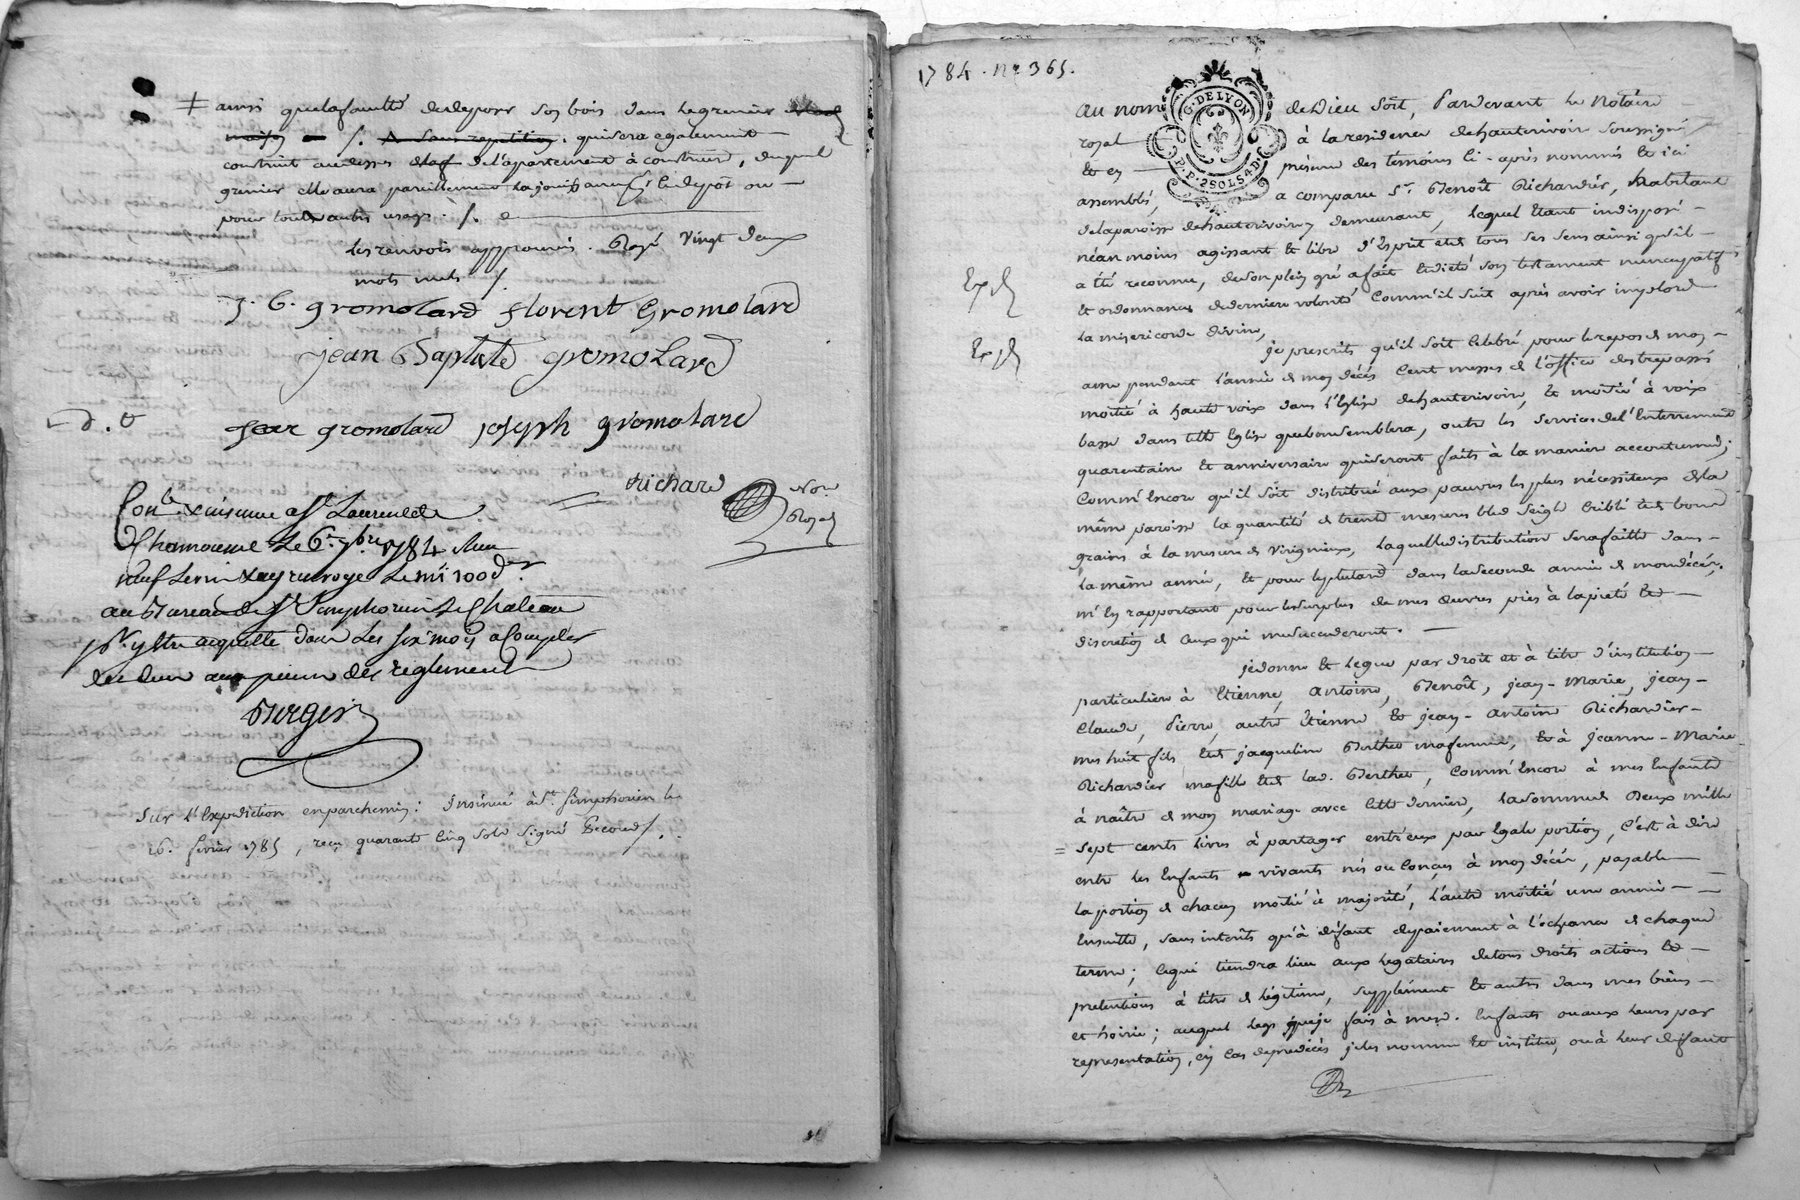 ainsi que la faculté de deposer son bois dans le grenier
maison /. A sans repetition. qui sera egalement
construit au dessus de l'apartement à construire, duquel
grenier elle aura pareillement la jouissance le depôt ou
pour tout autre usage ./.
les renvois approuvés. Rayé vingt deux
mots nuls /.
J. B. gromolard florent Gromolard
jean Baptiste gromolard
d. t
jean gromolard joseph gromolard
Richard Nore
Royal
Conlé & insinué a St Laurent de
Chamousset le 6e 7bre 1784 Reçu
neuf livres & renvoyé le mi 100d.
au Bureau de St Simphorien le Château
pr y être acquitté dans les six mois a compter
de ce jour aux peines des reglements
Berger
Sur l'Expedition en parchemin: Insinué à St. Simphorien le
26. fevrier 1785, reçu quarante cinq sols signé Second /.
1784. Nr 365.
G. DE LYON
P.P. 2 SOLS 4 D.
au nom de Dieu soit, Pardevant le Notaire
royal à la residence de hauterivoire soussigné
et en presence des témoins ci-après nommés et ici
assemblés, a comparu Sr. Benoît Richardier, habitant
de la paroisse de hauterivoire y demeurant, lequel étant indisposé
néanmoins agissant et libre d'esprit et de tous ses sens ainsi qu'il
Exp
a été reconnu, de son plein gré a fait et dicté son testament nuncupatif
et ordonnance de derniere volonté comm'il suit après avoir imploré
la misericorde divine,
Exp
je prescrits qu'il soit célébré pour le repos de mon
ame pendant l'année de mon décés cent messes de l'office des trepassés
moitié à haute voix dans l'Eglise de hauterivoire, et moitié à voix
basse dans telle Eglise que bon semblera, outre les services de l'Enterrement
quarentaine et anniversaire qui seront faits à la maniere accoutumée;
Comm'encore qu'il soit distribué aux pauvres les plus nécessiteux de la
même paroisse la quantité de trente mesures bled seigle criblé et de bons
grains à la mesure de Virigneux, laquelle distribution sera faitte dans
la même année, et pour le plutard dans la seconde année de mon décés,
m'en rapportant pour le surplus de mes œuvres pies à la pieté et
discretion de ceux qui me succederont.
je donne et legue par droit et à titre d'institution
particuliere à Etienne, Antoine, Benoît, jean-Marie, jean-
Claude, Pierre, autre Etienne et jean-Antoine Richardier
mes huit fils et de jacqueline Berthet ma femme, et à jeanne-Marie
Richardier ma fille et de lad. Berthet, comm'encore à mes Enfants
à naître de mon mariage avec cette derniere, la somme de Deux mille
= sept cents livres à partager entr'eux par Egale portion, c'est à dire
entre les Enfants vivants nés ou conçus à mon décés, payable
la portion de chacun moitié à majorité, l'autre moitié une année
Ensuitte, sans interêts qu'à défaut de paiement à l'echeance de chaque
terme; ce qui tiendra lieu aux legataires de tous droits actions et
pretentions à titre de légitime, supplément et autres dans mes biens
et hoirie; auquel legs que je fais à mesd. Enfants ou aux leurs par
representation, en cas de predécés je les nomme et institue, ou à leur défaut